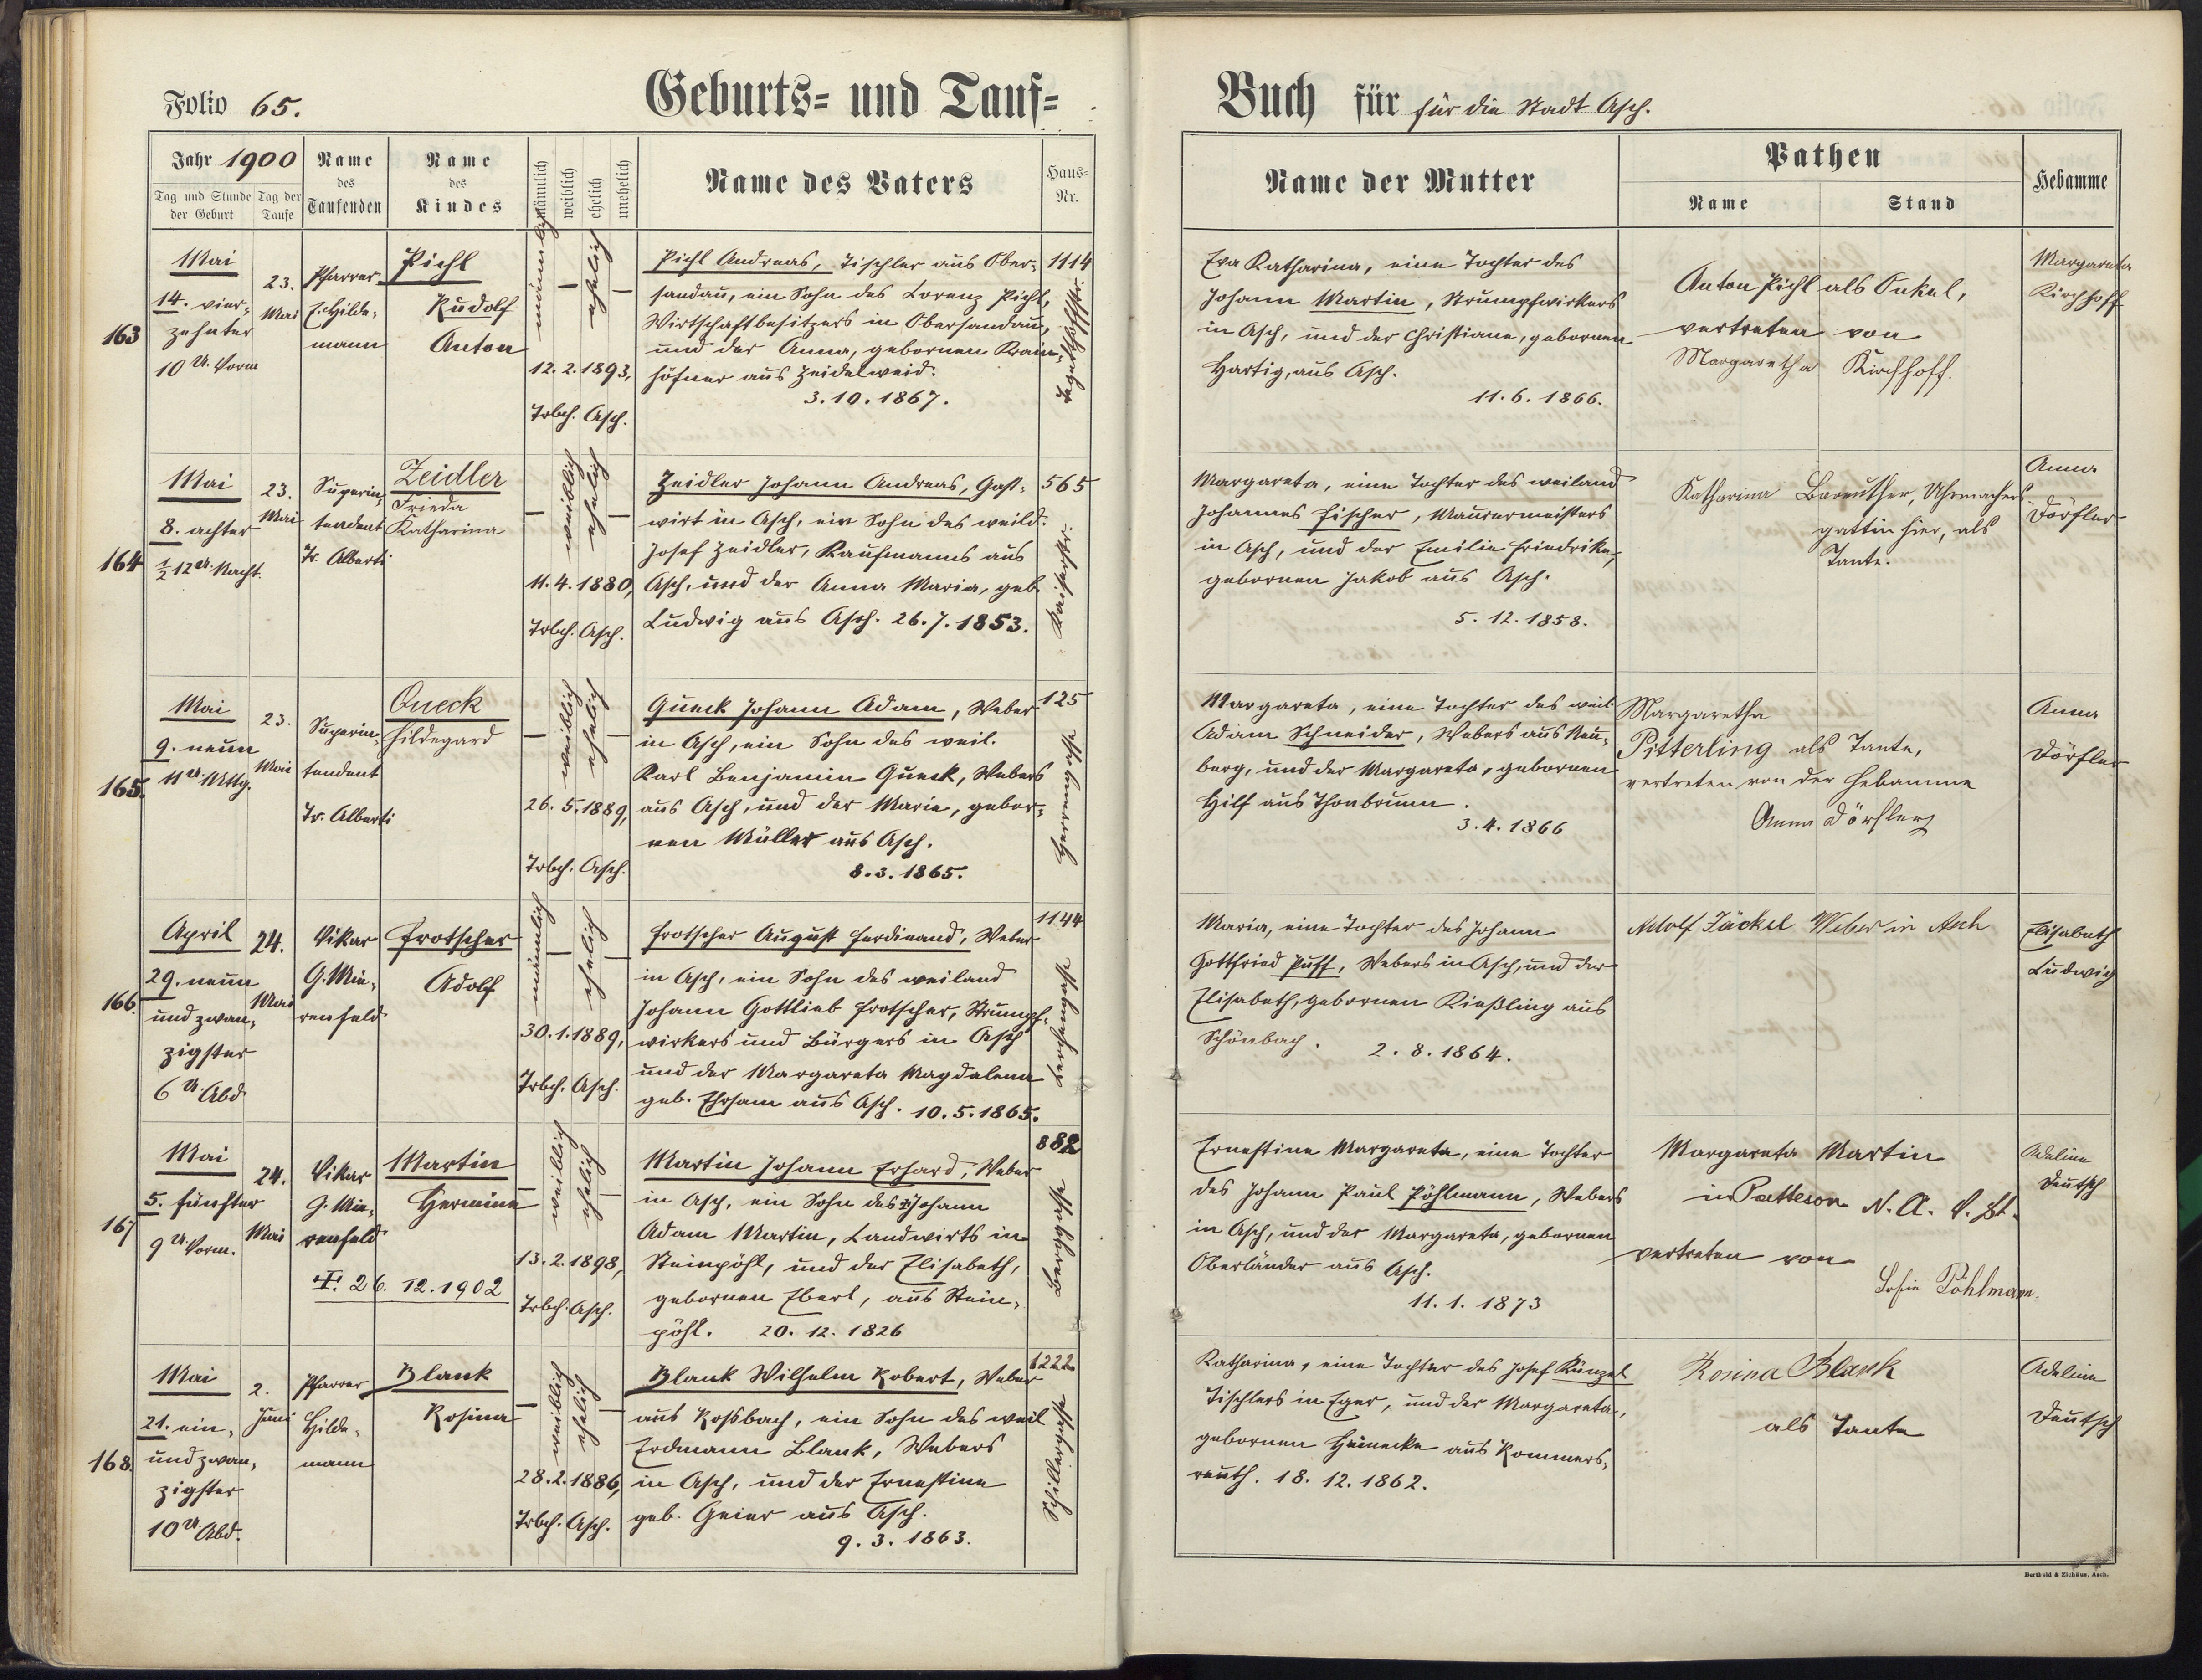 Folio 65.
Geburts= und Tauf=
Jahr 1900
Tag und Stunde der Geburt
Tag der Taufe
Name des Taufenden
Name des Kindes
männlich
weiblich
ehelich
unehelich
Name des Vaters
Haus=Nr.
Buch für für die Stadt Asch.
Name der Mutter
Pathen
Name
Stand
Hebamme
163
Mai
14. vier-
zehnter
10 U. Vorm
23.
Mai
Pfarrer
E. Hilde-
mann
Pichl
Rudolf
Anton
männlich
ehelich
12. 2. 1893,
Trbch. Asch.
Pichl Andreas, Tischler aus Ober-
sandau, ein Sohn des Lorenz Pichl,
Wirtschaftbesitzers in Obersandau,
und der Anna, gebornen Krain-
höfner aus Zeidelweid.
3. 10. 1867.
1114
Egerth
Eva Katharina, eine Tochter des
Johann Martin, Strumpfwirkers
in Asch, und der Christiane, gebornen
Hartig, aus Asch.
11. 6. 1866.
Anton Pichl als Onkel,
vertreten von
Margaretha Kirchhoff.
Margareta
Kirchhoff
164
Mai
8. achter
½ 12 U. Nacht.
23.
Mai
Superin-
tendent
Tr. Alberti
Zeidler
Frieda
Katharina
weiblich
ehelich
11. 4. 1880,
Trbch. Asch.
Zeidler Johann Andreas, Gast-
wirt in Asch, ein Sohn des weild.
Josef Zeidler, Kaufmanns aus
Asch, und der Anna Maria, geb.
Ludwig aus Asch. 26. 7. 1853.
565
Kaiserstr.
Margareta, eine Tochter des weiland
Johannes Fischer, Maurermeisters
in Asch, und der Emilie Friedrike,
gebornen Jakob aus Asch.
5. 12. 1858.
Katharina Bareuther, Uhrmachers-
gattin hier, als
Tante.
Anna
Dörfler
165.
Mai
9. neun
11 U. Mttg.
23.
Mai
Superin-
tendent
Tr. Alberti
Queck
Hildegard
weiblich
ehelich
26. 5. 1889,
Trbch. Asch.
Queck Johann Adam, Weber
in Asch, ein Sohn des weil.
Karl Benjamin Queck, Webers
aus Asch, und der Marie, gebor-
nen Müller aus Asch.
8. 3. 1865.
125
Herrengasse
Margareta, eine Tochter des weil.
Adam Schneider, Webers aus Neu-
berg, und der Margareta, gebornen
Hilf aus Thonbrunn.
3. 4. 1866
Margaretha
Pitterling als Tante,
vertreten von der Hebamme
Anna Dörfler
Anna
Dörfler
166.
April
29. neun
und zwan-
zigster
6 U. Abd.
24.
Mai
Vikar
G. Mü-
renfeld
Frotscher
Adolf
männlich
ehelich
30. 1. 1889,
Trbch. Asch.
Frotscher August Ferdinand, Weber
in Asch, ein Sohn des weiland
Johann Gottlieb Frotscher, Strumpf-
wirkers und Bürgers in Asch
und der Margareta Magdalena
geb. Ehrsam aus Asch. 10. 5. 1865.
1144
Lerchengasse
Maria, eine Tochter des Johann
Gottfried Puff, Webers in Asch, und der
Elisabeth, gebornen Kießling aus
Schönbach. 2. 8. 1864.
Adolf Jäckel Weber in Asch
Elisabeth
Ludwig
167
Mai
5. fünfter
9 U. Vorm.
24.
Mai
Vikar
G. Mü-
renfeld
Martin
Hermine
† 26. 12. 1902
weiblich
ehelich
13. 2. 1898,
Trbch. Asch.
Martin Johann Erhard, Weber
in Asch, ein Sohn des Johann
Adam Martin, Landwirts in
Steinpöhl, und der Elisabeth,
gebornen Ebert, aus Stein-
pöhl. 20. 12. 1826
882
Berggasse
Ernestine Margareta, eine Tochter
des Johann Paul Pöhlmann, Webers
in Asch, und der Margareta, gebornen
Oberländer aus Asch.
11. 1. 1873
Margareta Martin
in Patteson N. A. V. St.
vertreten von
Sofie Pöhlmann.
Adeline
Deutsch
168.
Mai
21. ein-
und zwan-
zigster
10 U. Abd.
2.
Juni
Pfarrer
Hilde-
mann
Blank
Rosina
weiblich
ehelich
28. 2. 1886,
Trbch. Asch.
Blank Wilhelm Robert, Weber
aus Rossbach, ein Sohn des weil
Erdmann Blank, Webers
in Asch, und der Ernestine
geb. Geier aus Asch.
9. 3. 1863.
1222
Schillergasse
Katharina, eine Tochter des Josef Künzel
Tischlers in Eger, und der Margareta,
gebornen Heinecke aus Rommers-
reuth. 18. 12. 1862.
Rosina Blank
als Tante
Adeline
Deutsch
Berthold & Zichäus, Asch.